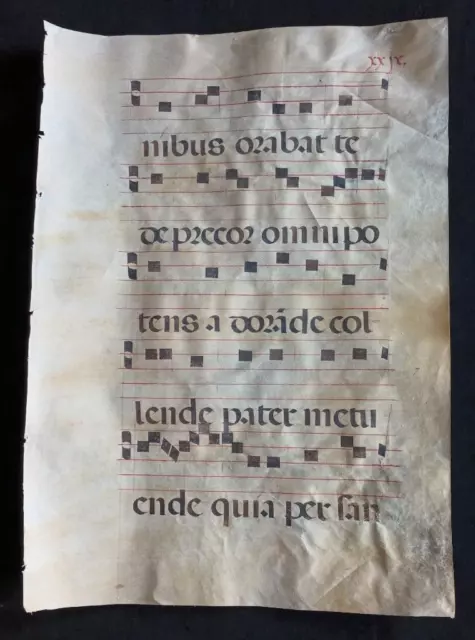 xxix.
nibus orabat te
de precor omnipo
tens adorāde col
lende pater metu
ende quia per san